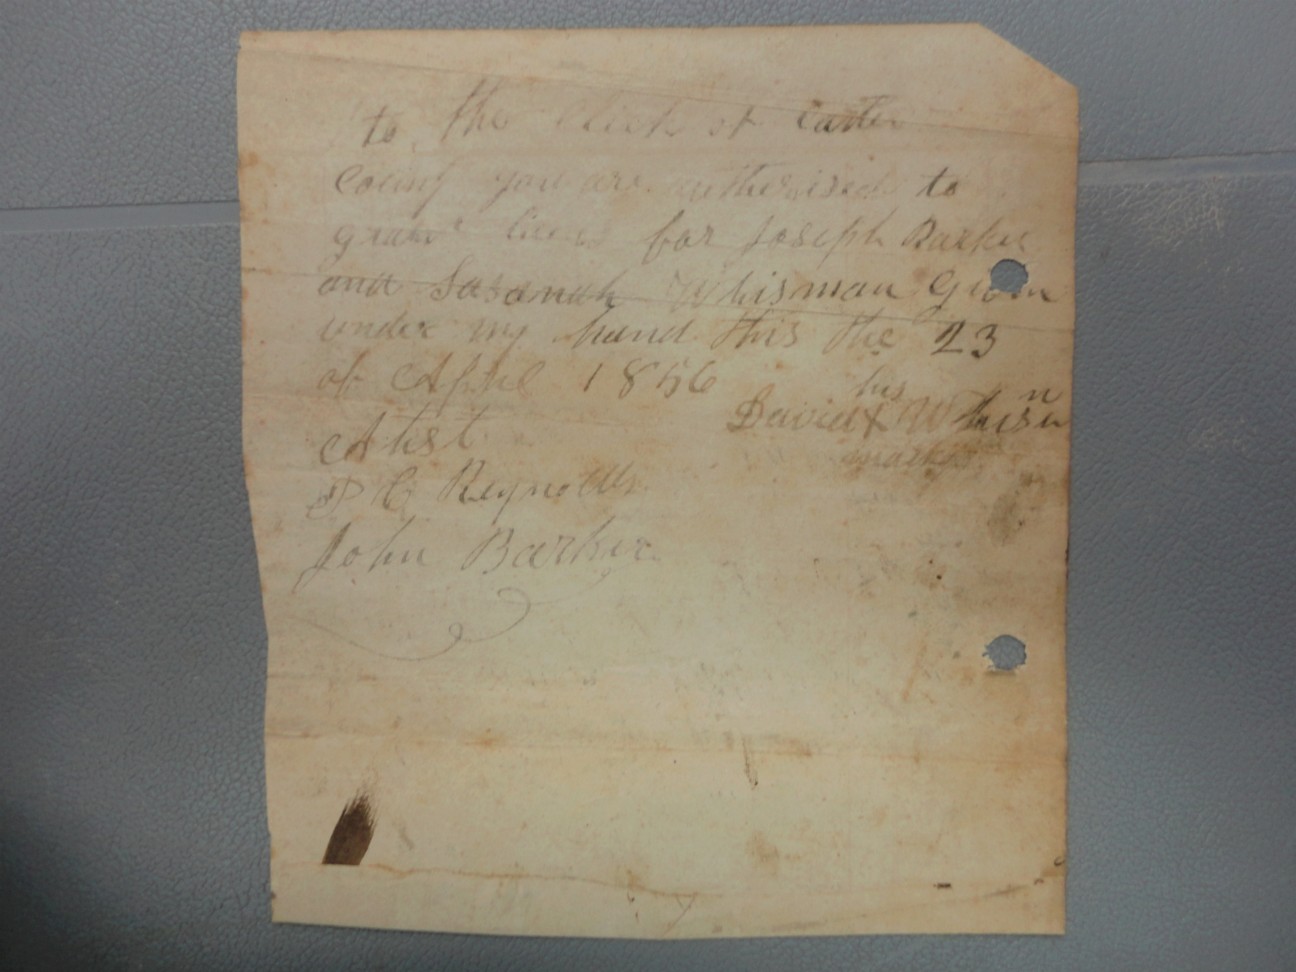 to the Clerk of Carter
County you are autherised to
grant for Joseph Barker
and Susanah Whisman Given
under my hand this the 23
of April 1856
his
David X Whisman
mark
Atest
Reynolds
John Barker